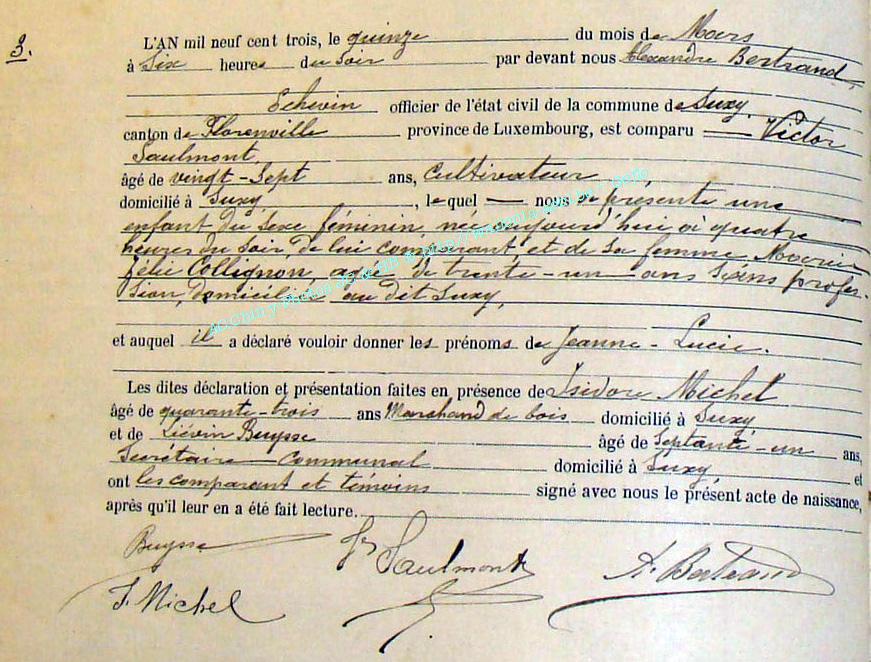 3.
L'AN mil neuf cent trois, le quinze du mois de Mars
à Six heures du soir par devant nous Alexandre Bertrand,
Echevin officier de l'état civil de la commune de Suxy
canton de Florenville province de Luxembourg, est comparu Victor
Saulmont,
âgé de vingt-Sept ans, Cultivateur
domicilié à Suxy, lequel nous a présenté une
enfant du sexe féminin, née aujourd'hui à quatre
heures du soir, de lui comparant et de sa femme, Marie
Collignon, agée de trente-un ans Sans profes-
sion, domiciliée au dit Suxy,
et auquel il a déclaré vouloir donner les prénoms de Jeanne-Lucie.
Les dites déclaration et présentation faites en présence de Isidore Michel
âgé de quarante-trois ans Marchand de bois domicilié à Suxy
et de Liévin Buysse âgé de Septante-un ans,
Secrétaire Communal domicilié à Suxy et
ont les comparant et témoins signé avec nous le présent acte de naissance,
après qu'il leur en a été fait lecture.
Buysse Saulmont A. Bertrand
I. Michel